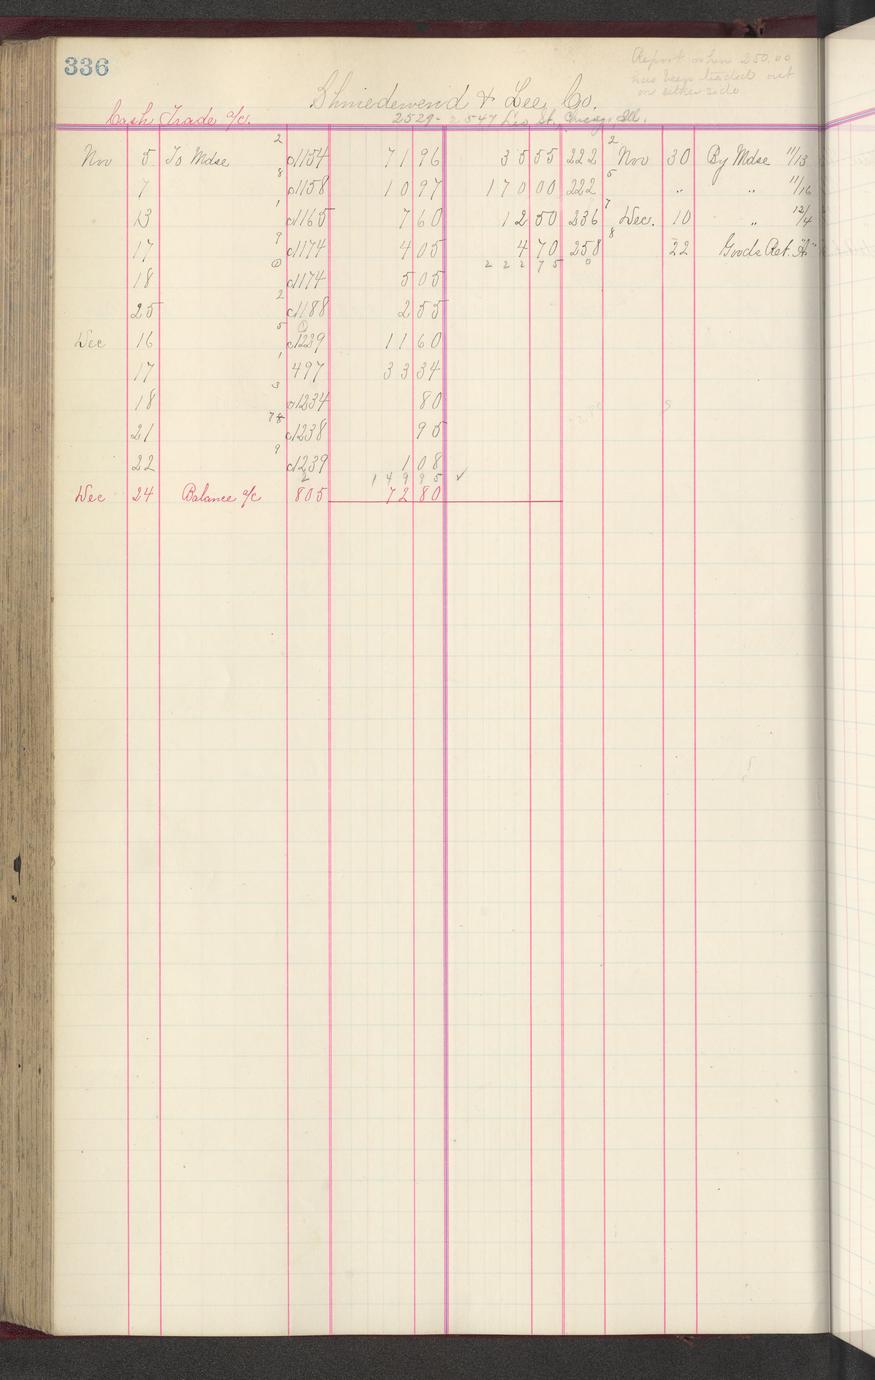 336
Report when 250.00
has been traded out
on either side
Shniedewend & Lee, Co.
Cash Trade a/c. 2529-2547 Leo St, Chicago Ill.
Nov 5 To Mdse 2 c1154 71 96 35 55 222 2 Nov 30 By Mdse 11/13
7 8 c1158 10 97 170 00 222 5 " " 11/16
13 1 c1165 7 60 12 50 236 7 Dec. 10 " 12/4
17 9 c1174 4 05 4 70 258 8 22 Goods Ret. "A"
222 75 0
18 0 c1174 5 05
25 2 c1188 2 55
Dec 16 5 c1229 11 60
17 1 497 33 34
18 3 c1234 80
21 78 c1238 95
22 9 c1239 1 08
2 149 95 ✓
Dec 24 Balance a/c 805 72 80